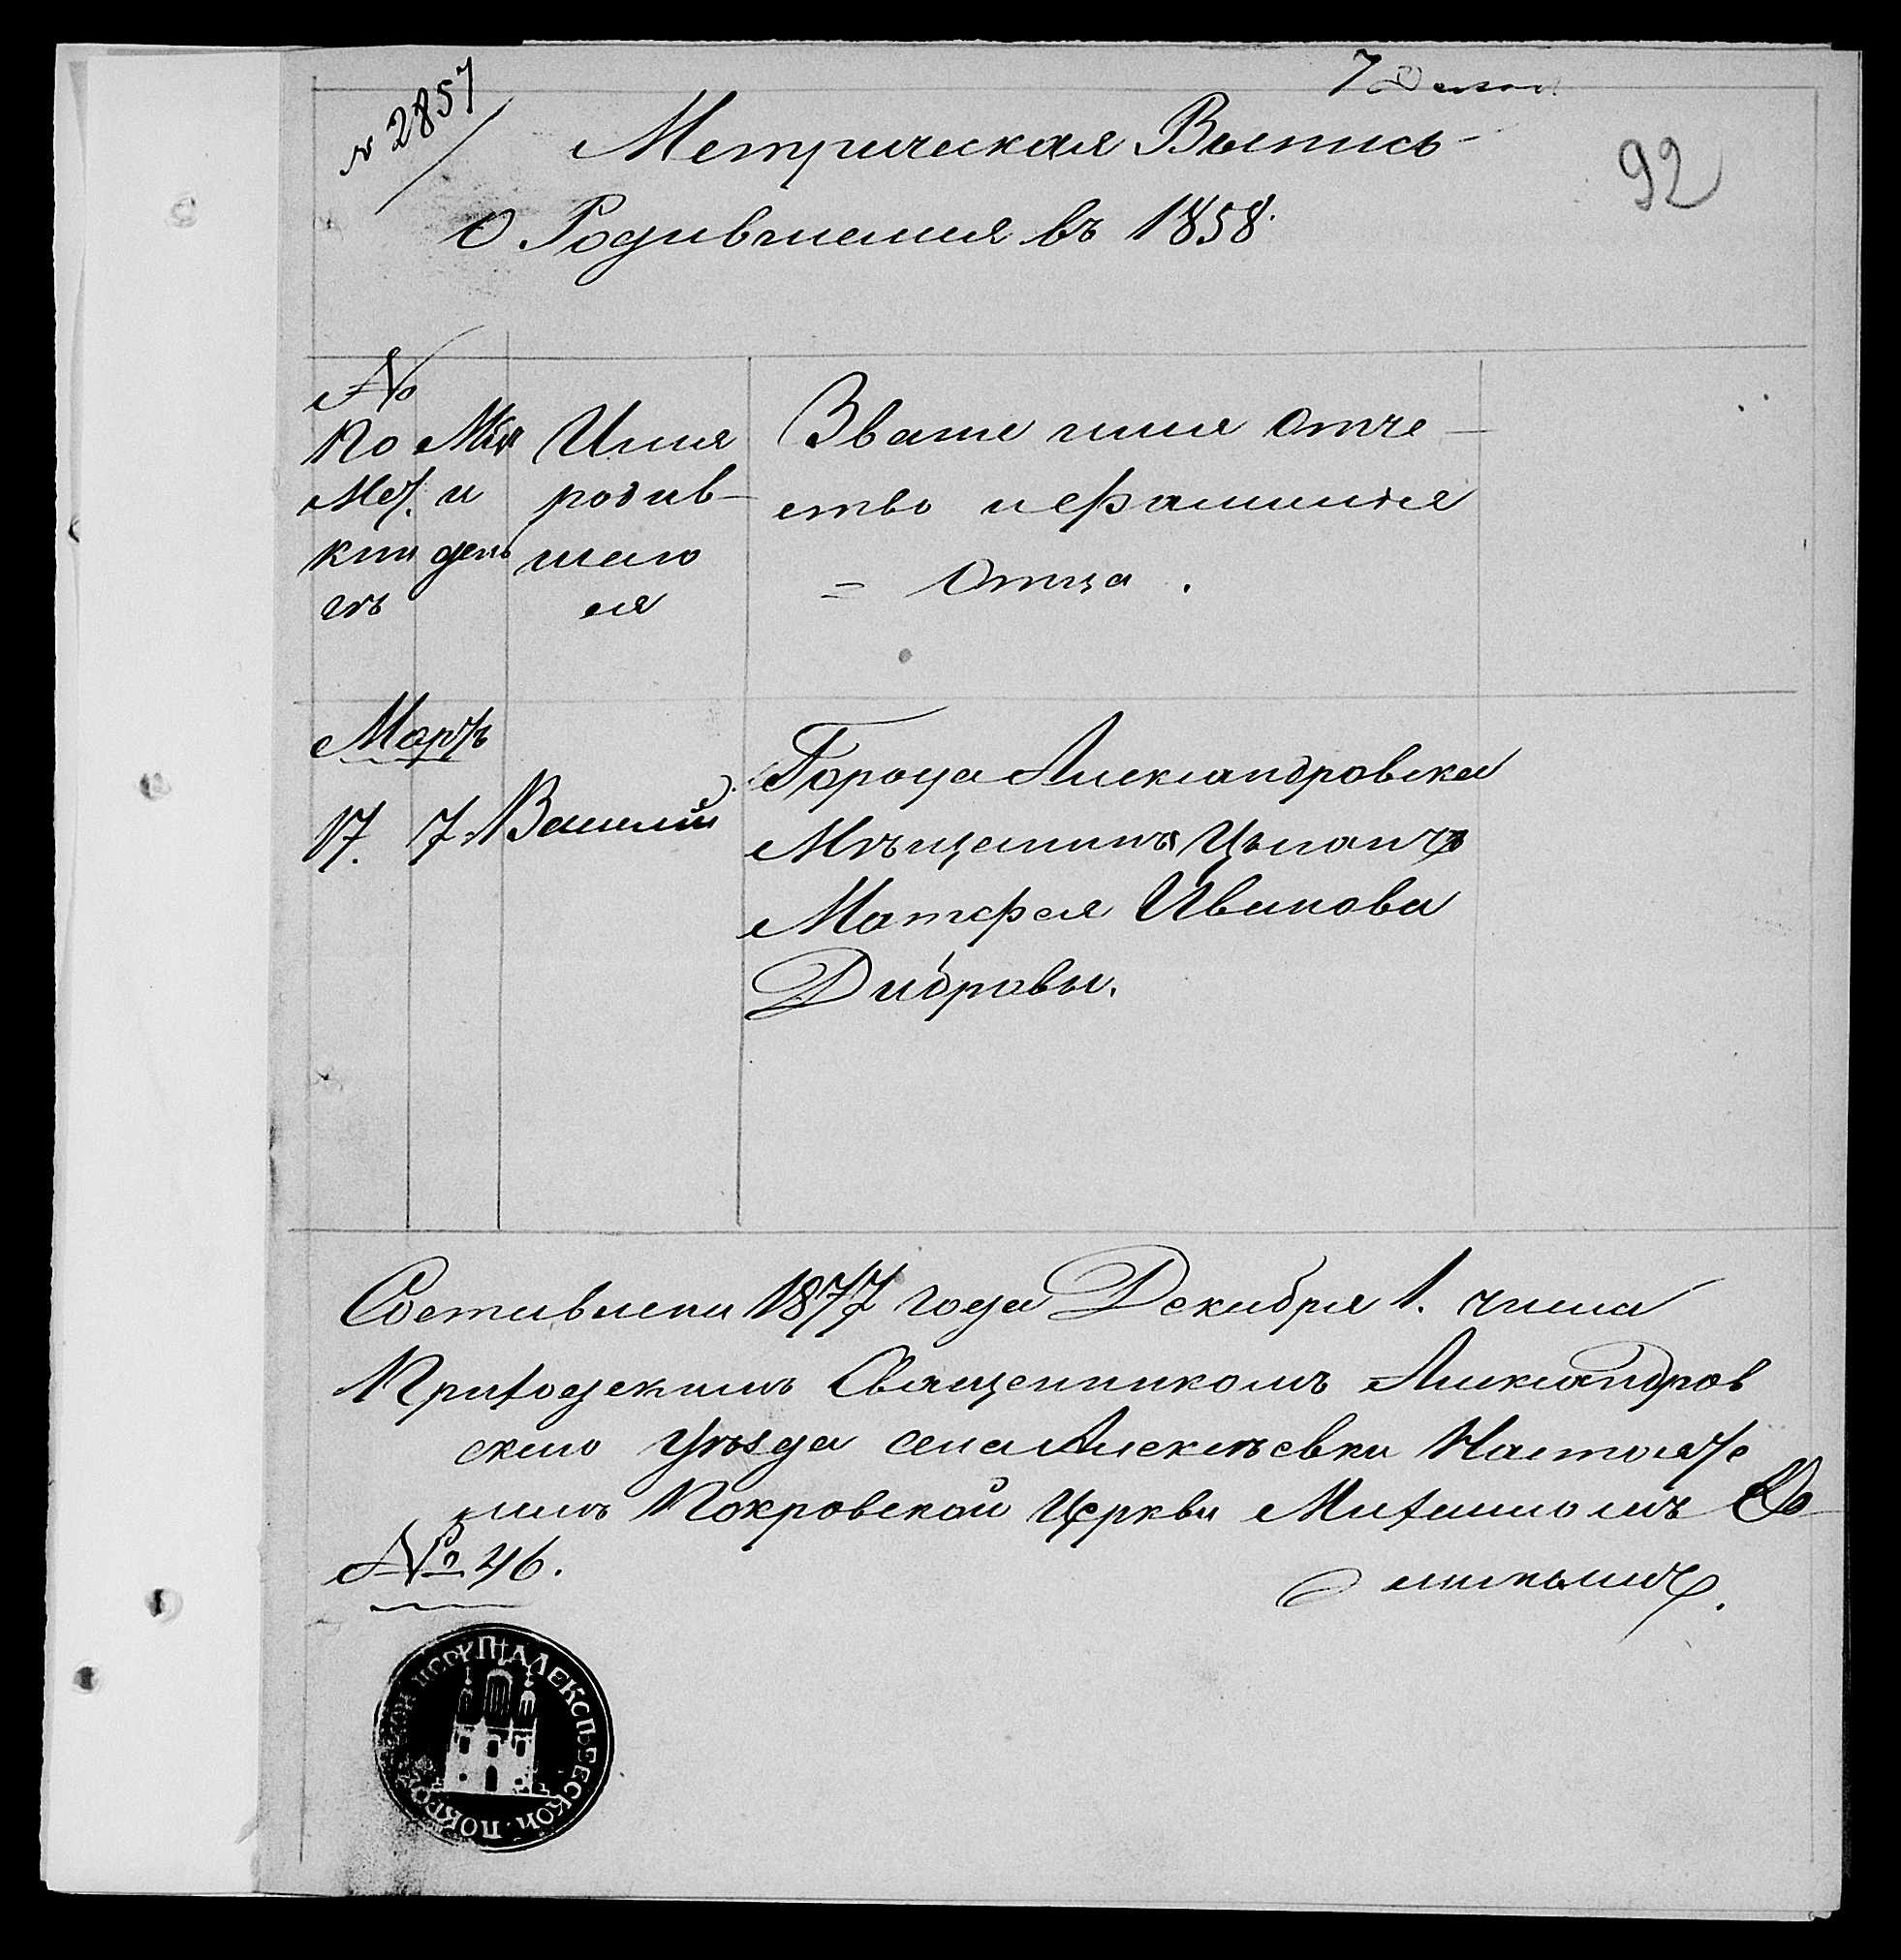 7 Декаб.
№ 2857
92
Метрическая Выпись
О Родившемся въ 1858.
№
по Мет. книгѣ
Мѣс. и день
Имя родив-
шаго
ся
Званіе имя отче-
ство и фамилія
= Отца.
Мартъ
17. 7 Василій
Города Александровска
Мѣщанинъ Цыганъ
Матфея Иванова
Диброва.
Составлена 1877 года Декабря 1. числа
Приходскимъ Священникомъ Александров
скаго Уѣзда села Алексѣевки Настояте
лемъ Покровской Церкви Михаиломъ
№ 46.
ПОКРОВСКОЙ ЦЕРКВИ АЛЕКСѢЕВСКОЙ